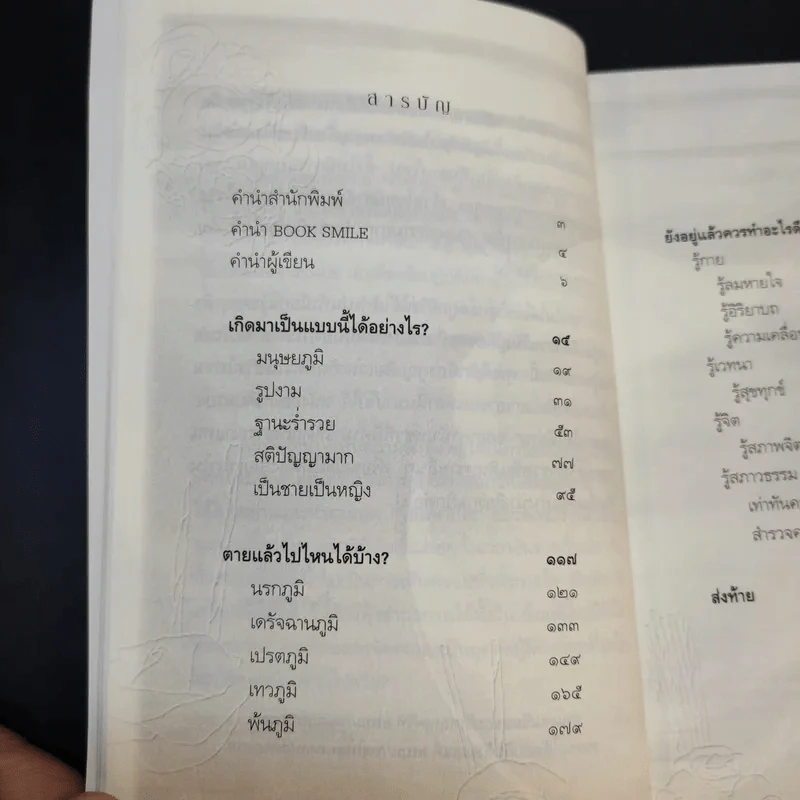 สารบัญ
คำนำสำนักพิมพ์ ๓
คำนำ BOOK SMILE ๕
คำนำผู้เขียน ๖
เกิดมาเป็นแบบนี้ได้อย่างไร? ๑๕
มนุษยภูมิ ๑๙
รูปงาม ๓๑
ฐานะร่ำรวย ๕๓
สติปัญญามาก ๗๗
เป็นชายเป็นหญิง ๙๕
ตายแล้วไปไหนได้บ้าง? ๑๑๗
นรกภูมิ ๑๒๑
เดรัจฉานภูมิ ๑๓๓
เปรตภูมิ ๑๔๙
เทวภูมิ ๑๖๕
พ้นภูมิ ๑๗๙
ยังอยู่แล้วควรทำอะไรดี
รู้กาย
รู้ลมหายใจ
รู้อิริยาบถ
รู้ความเคลื่อน
รู้เวทนา
รู้สุขทุกข์
รู้จิต
รู้สภาพจิต
รู้สภาวธรรม
เท่าทัน
สำรวจ
ส่งท้าย